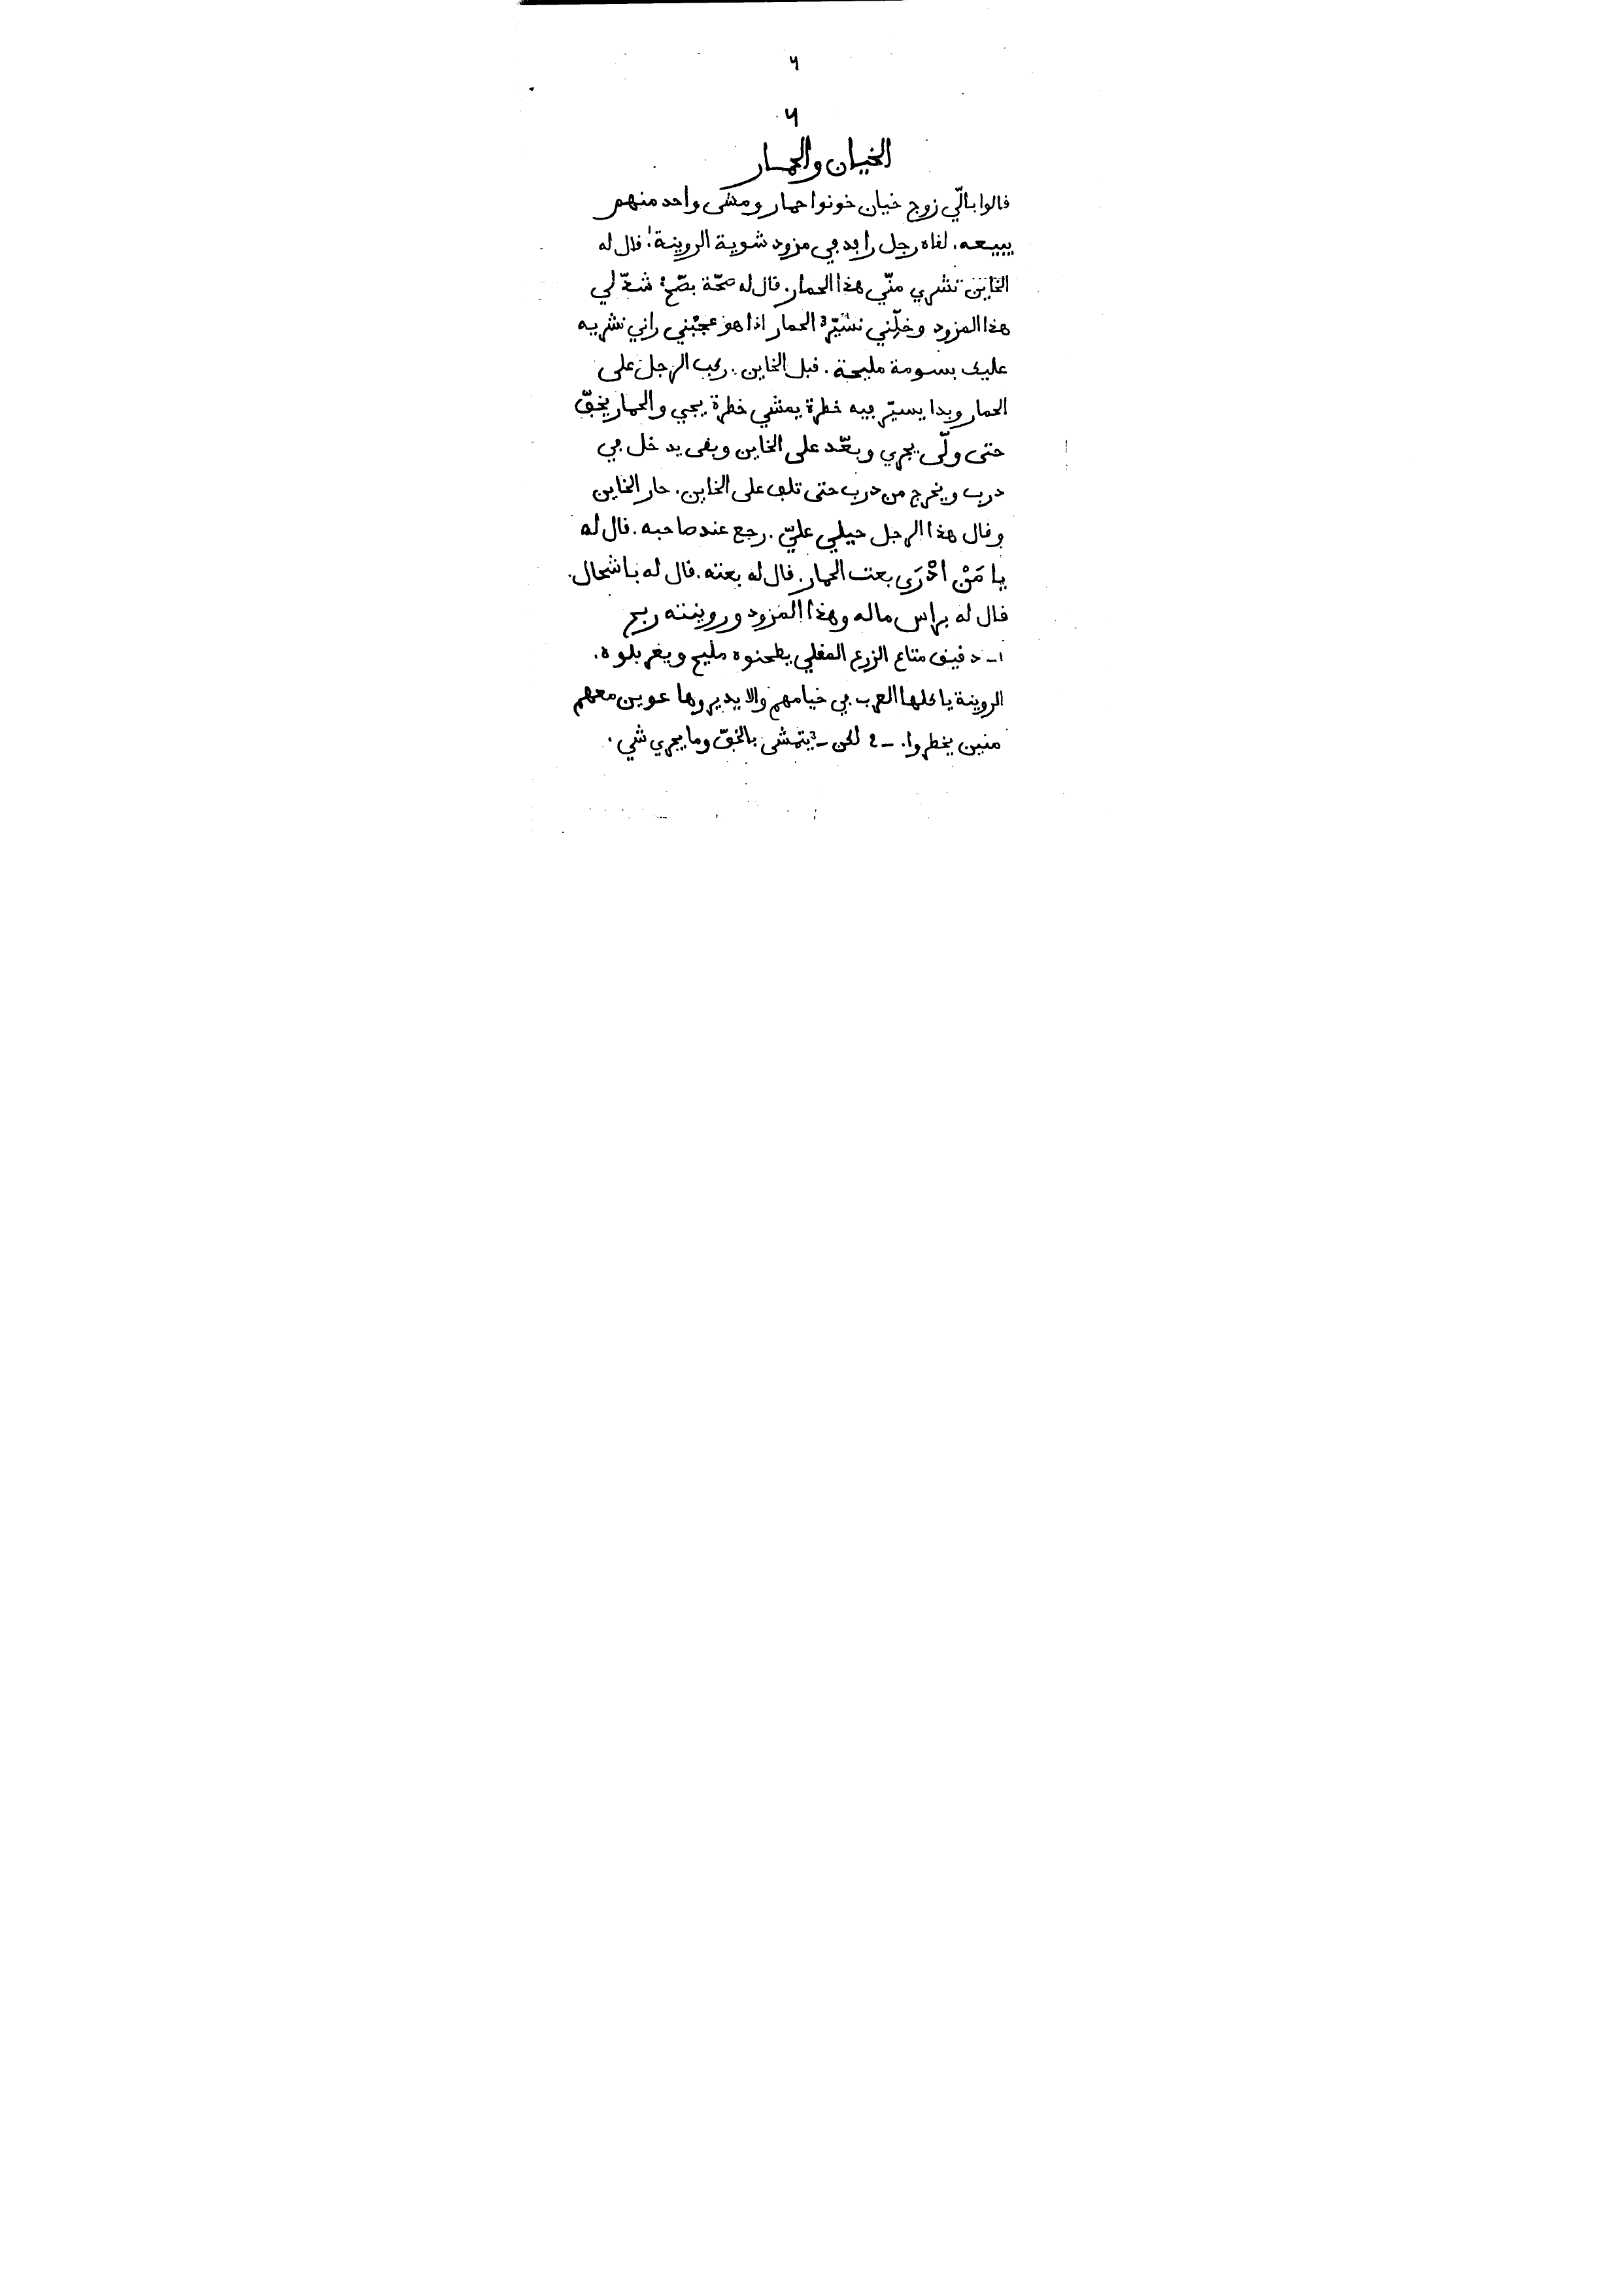 ٦
٦
الخيان والحمار
ڧالوا بالّي زوج خيان خونوا حمار ومشى واحد منهم
يبيعه. لڧاه رجل راڧد ڢي مزود شوية الروينة¹. ڧال له
الخاين تشري منّي هذا الحمار. ڧال له صحّة بصّح² شدّ لي
هذا المزود وخلّني نسيّر³ الحمار اذا هو عجبني راني نشريه
عليك بسومة مليحة. ڧبل الخاين. ركب الرجل على
الحمار وبدا يسيّر ڢيه خطرة يمشي خطرة يجي والحمار يخبّ
حتى ولّى يجري وبعّد على الخاين وبڧى يدخل ڢي
درب ويخرج من درب حتى تلڢ على الخاين. حار الخاين
وڧال هذا الرجل حيلي عليّ. رجع عند صاحبه. ڧال له
يا مَنْ ادْرَى بعت الحمار. ڧال له بعته. ڧال له باشحال.
ڧال له براس ماله وهذا المزود وروينته ربح
١- دڧيڧ متاع الزرع المغلي يطحنوه مليح ويغربلوه.
الروينة ياكلها العرب ڢي خيامهم والا يديروها عوين معهم
منين يخطروا. - ٢ لكن - ٣ يتمشى بالخبّ وما يجري شي.